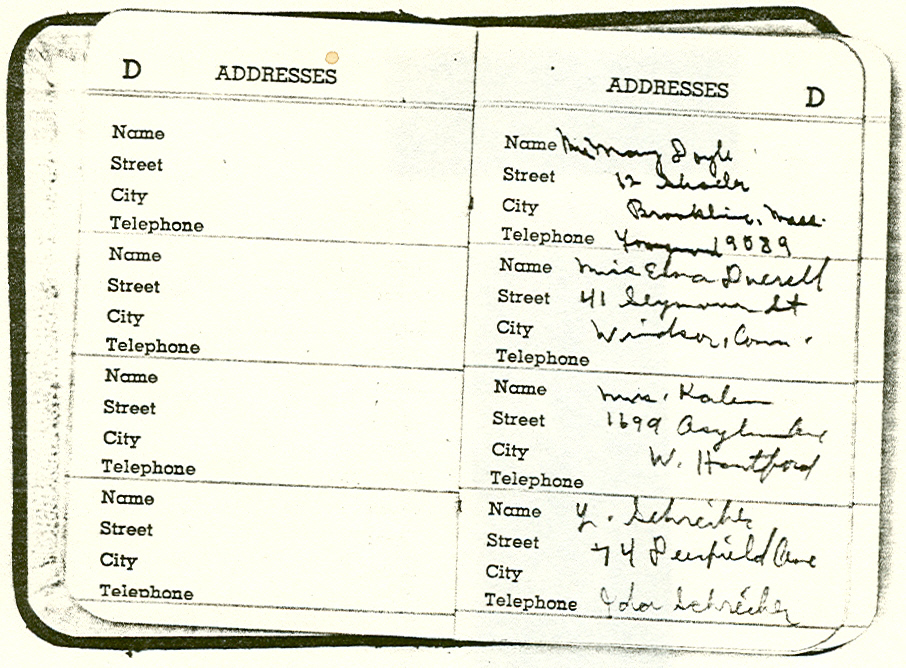 D ADDRESSES
Name
Street
City
Telephone
Name
Street
City
Telephone
Name
Street
City
Telephone
Name
Street
City
Telephone
ADDRESSES D
Name Mary Doyle
Street 12
City Brookline, Mass.
Telephone 19089
Name Miss Duerell
Street 41 Seymour St
City Windsor, Conn.
Telephone
Name Mrs. Kalem
Street 1699 Asylum Ave
City W. Hartford
Telephone
Name Y. Schreiber
Street 74 Penfield Ave
City
Telephone Ida Schreiber